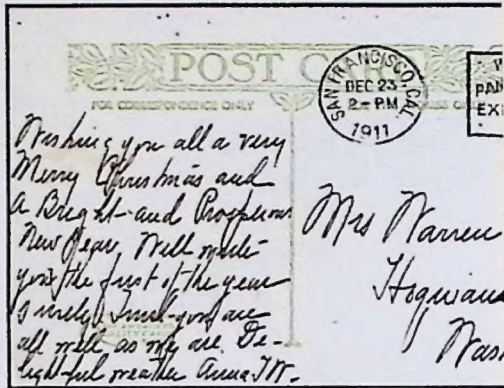 POST CARD
FOR CORRESPONDENCE ONLY
SAN FRANCISCO, CAL.
DEC 23
2 - PM
1911
PAN
EX
Wishing you all a very
Merry Christmas and
a Bright and Prosperous
New Year. Will write
you the first of the year
surely. Trust you are
all well as we are. De-
lightful weather Anna T.W.
Mrs Warren
Was